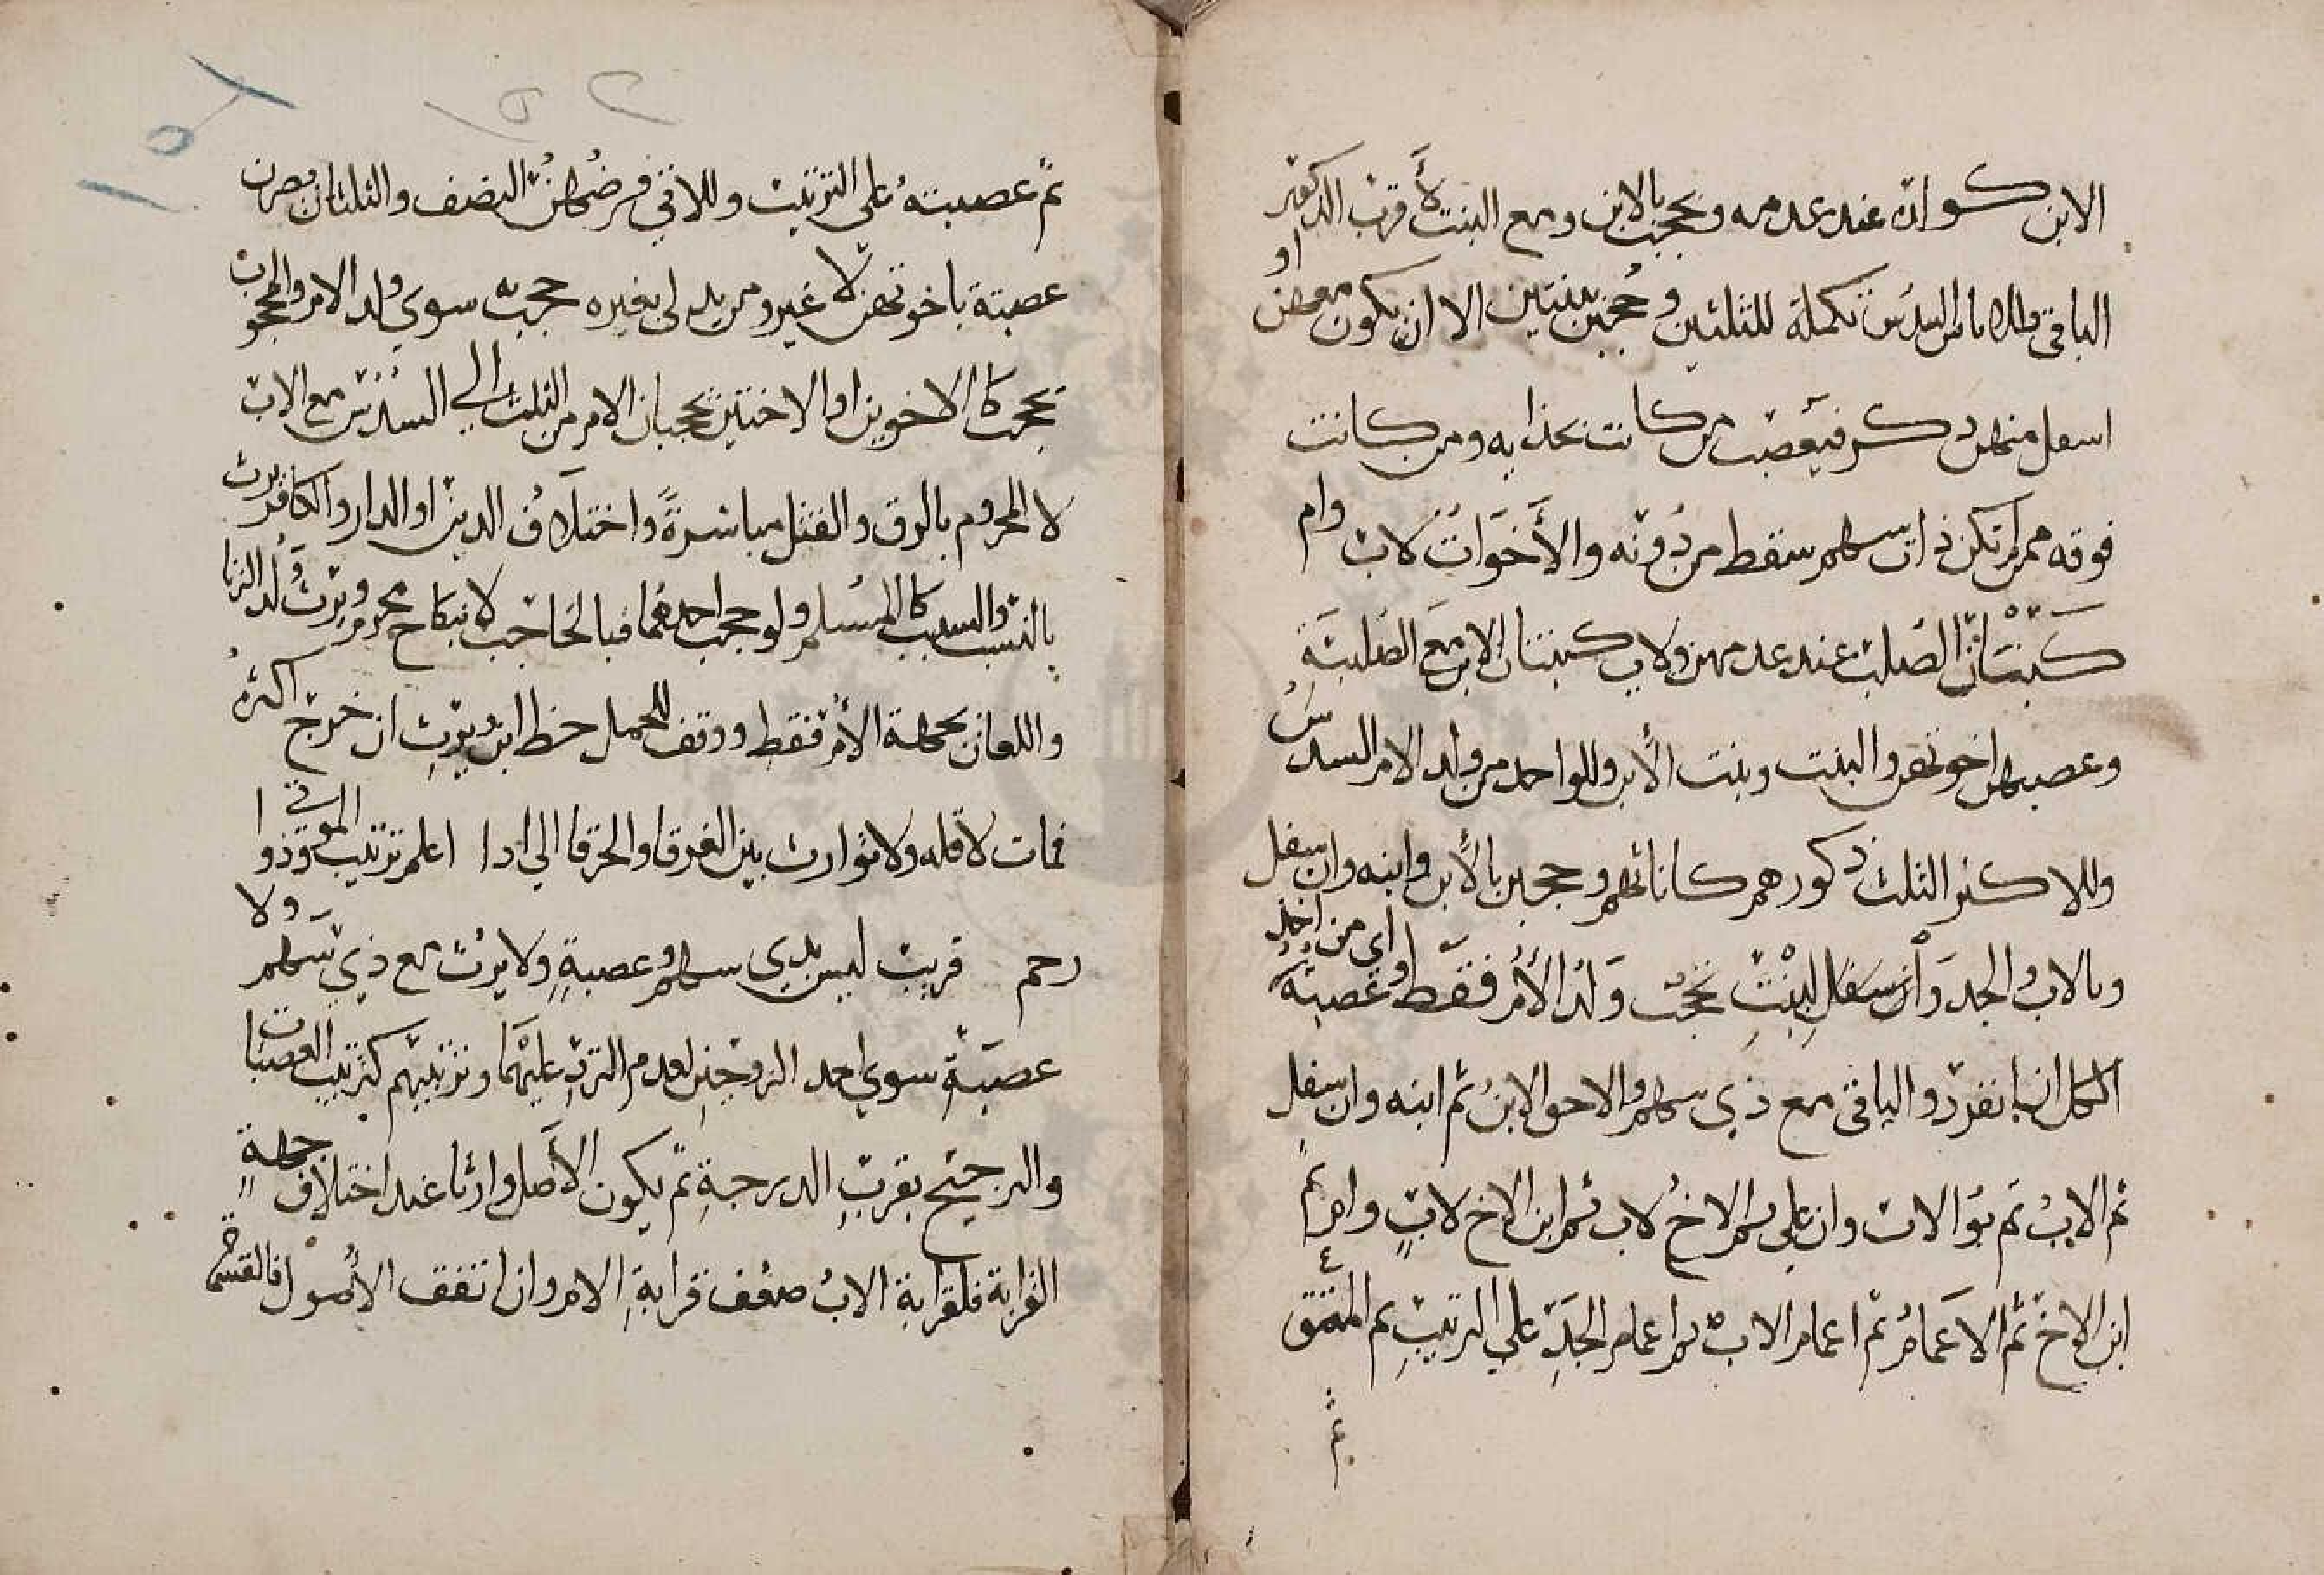 الابن كولده عند عدمه ويحجب بالابن ومع البنت لأقرب الذكور
الباقي وللاناث السدس تكملة للثلثين وحجبن ببنتين الا ان يكون معهن او
اسفل منهن ذكر فيعصب من كانت بحذايه ومن كانت
فوقه ممن لم تكن ذات سهم وسقط من دونه والأخوات لاب وام
كبنات الصلب عند عدمهن ولاب كبنات الابن مع الصلبية
وعصبهن اخوتهن والبنت وبنت الأبن وللواحد من ولد الام السدس
وللاكثر الثلث ذكورهم كاناثهم وحجبن بالأبن وابنه وان سفل
وبالاب والجد وأن سفل البنت تحجب ولد الأم فقط وعصبة اي من اخذ
الكل ان انفرد والباقي مع ذي سهم والاحق الابن ثم ابنه وان سفل
ثم الاب ثم ابو الاب وان علي ثم الاخ لاب ثم ابن الاخ لاب وام ثم
ابن الاخ ثم الاعمام ثم اعمام الاب ثم اعمام الجد علي الترتيب ثم المعتق
ثم
ثم عصبته على الترتيب واللاتي فرضهن النصف والثلثان يصرن
عصبة باخوتهن لا غير ومن يدلى بغيره حجب به سوي ولد الام والمحجوب
يحجب كالاخوين او الاختين يحجبان الام من الثلث الي السدس مع الاب
لا المحروم بالرق والقتل مباشرةً واختلاف الدين او الدار والكافر يرث
بالنسب والسبب كالمسلم ولو حجب احدهما فبالحاجب لا بنكاح محرم ويرث ولد الزنا
واللعان بجهة الأم فقط ووقف للحمل حظ ابن ويرث ان خرج اكثره
فمات لا اقله ولا توارث بين الغرقا والحرقا الي اذا اعلم ترتيب الموتي وذوا
رحم قريب ليس بذي سهم وعصبةٍ ولا يرث مع ذي سهم ولا
عصبةٍ سوي احد الزوجين لعدم الرد عليهما وترتيبهم كترتيب العصبات
والترجيح بقرب الدرجة ثم يكون الأصل وارثا عند اختلاف جهة
القرابة فلقرابة الاب ضعف قرابة الام وان اتفق الأصول فالقسمة